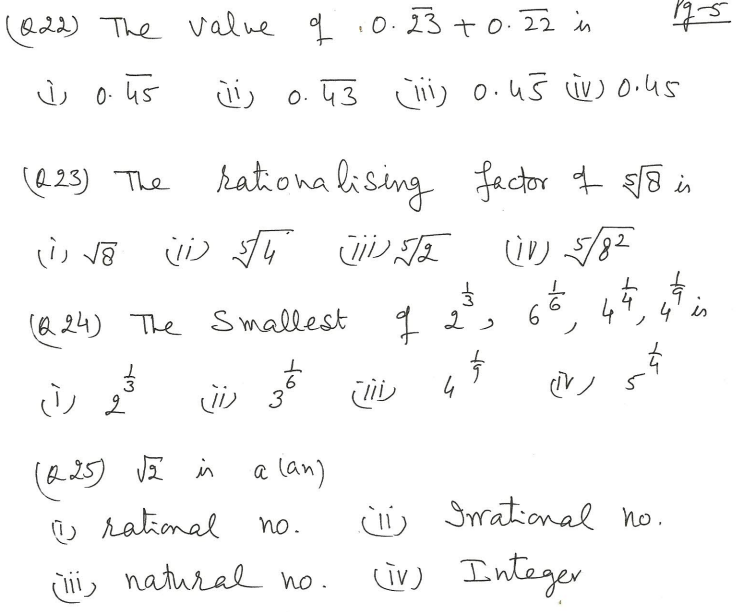 Pg-5
(Q22) The value of 0.2̅3̅ + 0.2̅2̅ is
i) 0.4̅5̅ ii) 0.4̅3̅ iii) 0.45̅ iv) 0.45
(Q23) The rationalising factor of ⁵√8 is
(i) √8 (ii) ⁵√4 (iii) ⁵√2 (iv) ⁵√8²
(Q24) The Smallest of 2^(1/3), 6^(1/6), 4^(1/4), 4^(1/9) is
(i) 2^(1/3) (ii) 3^(1/6) (iii) 4^(1/9) (iv) 5^(1/4)
(Q25) √2 is a (an)
(i) rational no. (ii) Irrational no.
(iii) natural no. (iv) Integer